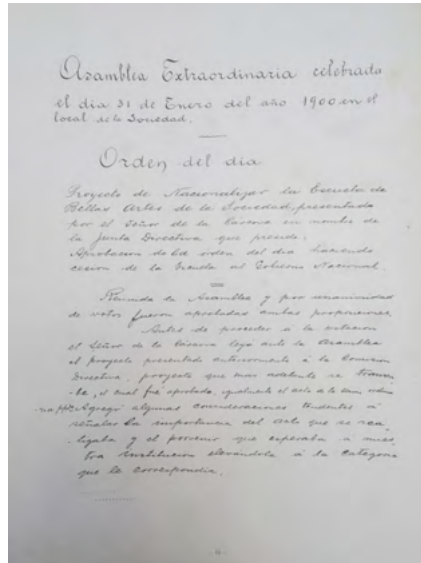 Asamblea Extraordinaria celebrada
el dia 31 de Enero del año 1900 en el
local de la Sociedad.
Orden del dia
Proyecto de Nacionalizar la Escuela de
Bellas Artes de la Sociedad, presentado
por el Señor de la Cárcova en nombre de
la Junta Directiva que preside.
Aprobacion de la orden del dia haciendo
cesion de la Escuela al Gobierno Nacional.
Reunida la Asamblea y por unanimidad
de votos fueron aprobadas ambas proposiciones.
Antes de proceder á la votacion
el Señor de la Cárcova leyó ante la Asamblea
el proyecto presentado anteriormente á la Comision
Directiva, proyecto que mas adelante se transcri-
-be, el cual fué aprobado, igualmente el acto
Agregó algunas consideraciones tendentes á
señalar la importancia del acto que se rea-
-lizaba y el porvenir que esperaba á nues
tra institucion elevandola á la categoria
que le correspondia.